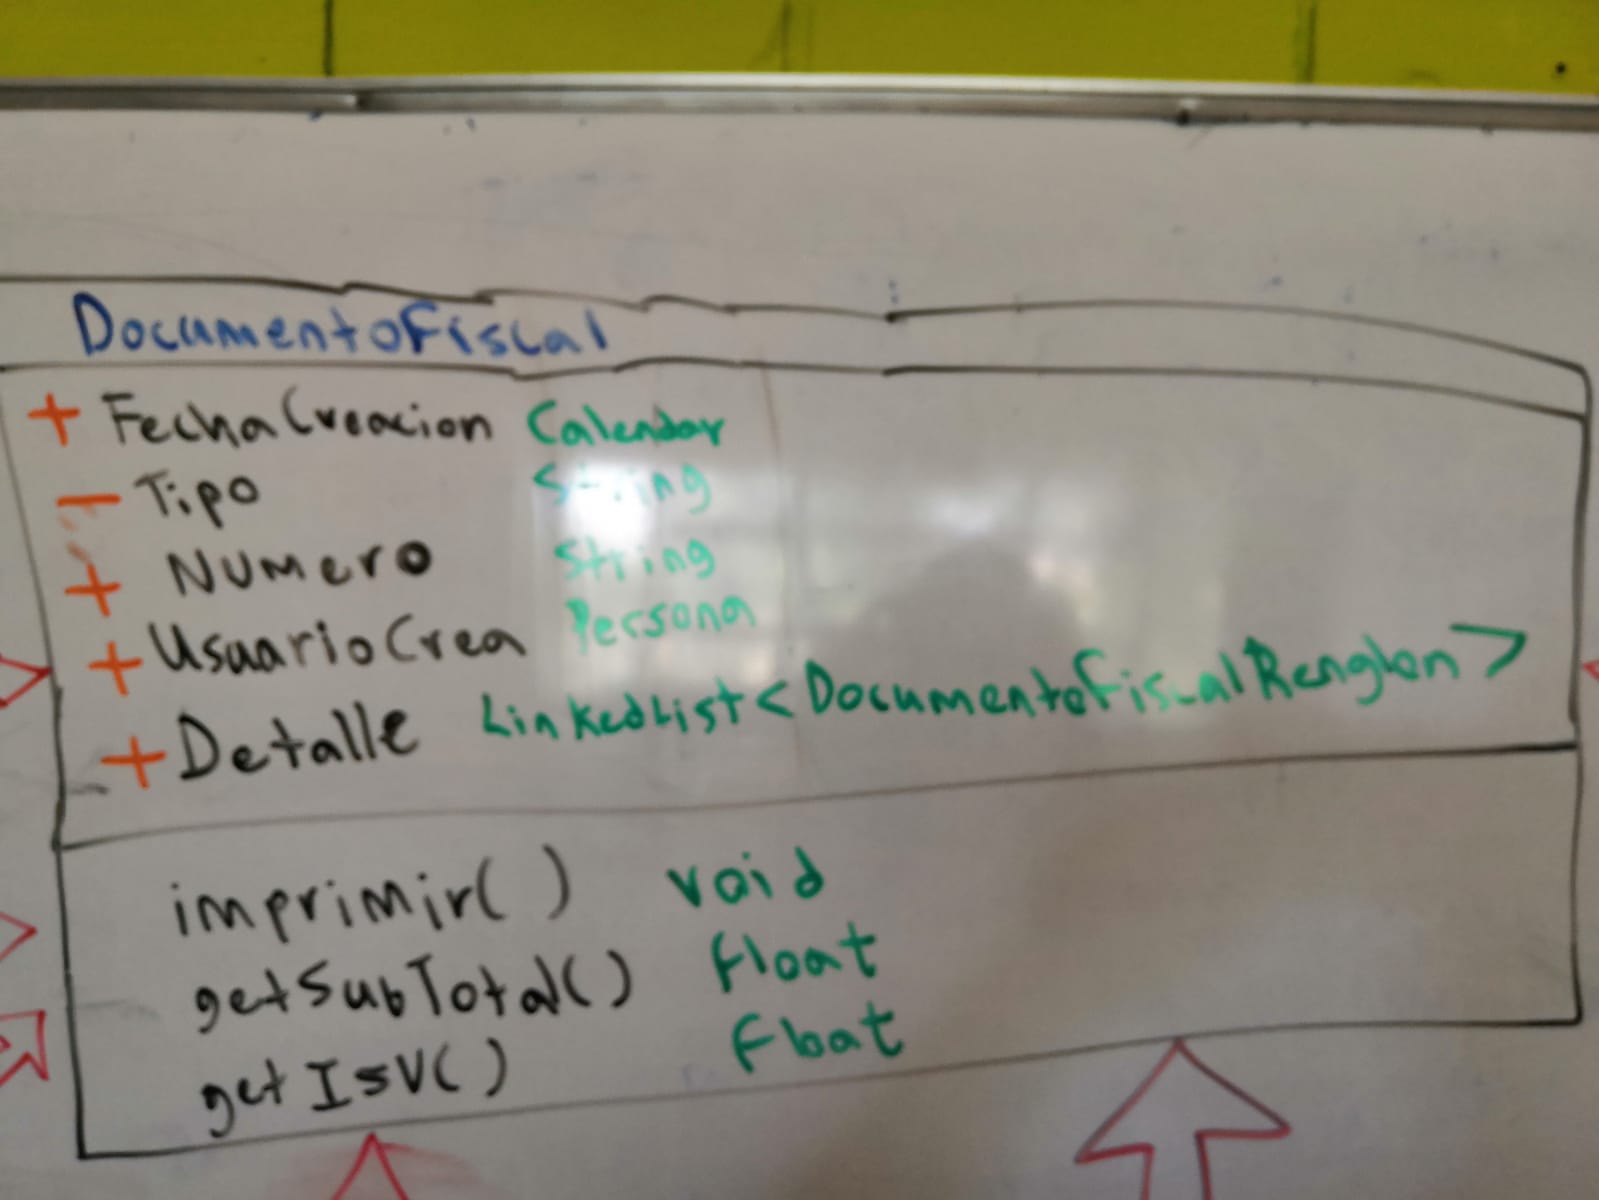 DocumentoFiscal
+ FechaCreacion Calendar
- Tipo String
+ Numero String
+ UsuarioCrea Persona
+ Detalle LinkedList<DocumentoFiscalRenglon>
imprimir( ) void
getSubTotal( ) float
getIsV( ) float